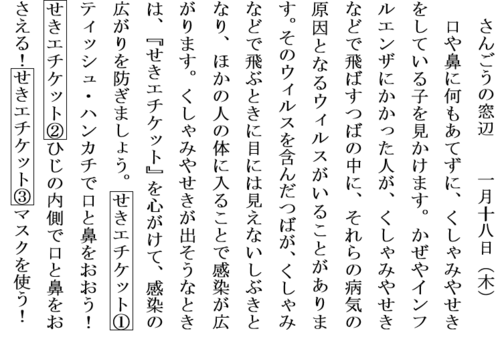 さんごうの窓辺　　一月十八日（木）
　口や鼻に何もあてずに、くしゃみやせき
をしている子を見かけます。かぜやインフ
ルエンザにかかった人が、くしゃみやせき
などで飛ばすつばの中に、それらの病気の
原因となるウィルスがいることがありま
す。そのウィルスを含んだつばが、くしゃみ
などで飛ぶときに目には見えないしぶきと
なり、ほかの人の体に入ることで感染が広
がります。くしゃみやせきが出そうなとき
は、『せきエチケット』を心がけて、感染の
広がりを防ぎましょう。せきエチケット①
ティッシュ・ハンカチで口と鼻をおおう！
せきエチケット②ひじの内側で口と鼻をお
さえる！せきエチケット③マスクを使う！